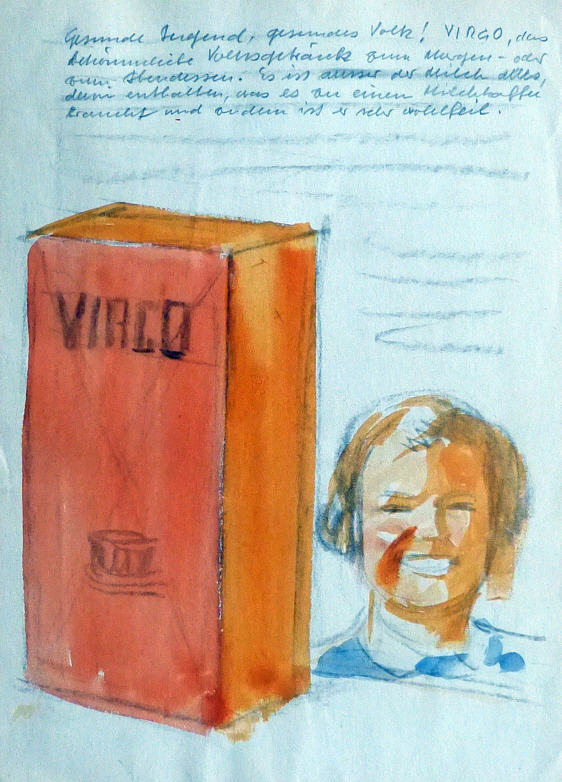 Gesunde Jugend, gesundes Volk! VIRGO, das
bekömmliche Volksgetränk zum Morgen- oder
zum Abendessen. Es ist ausser der Milch alles,
darin enthalten, was es zu einem Milchkaffee
braucht und zudem ist er sehr wohlfeil.
VIRGO